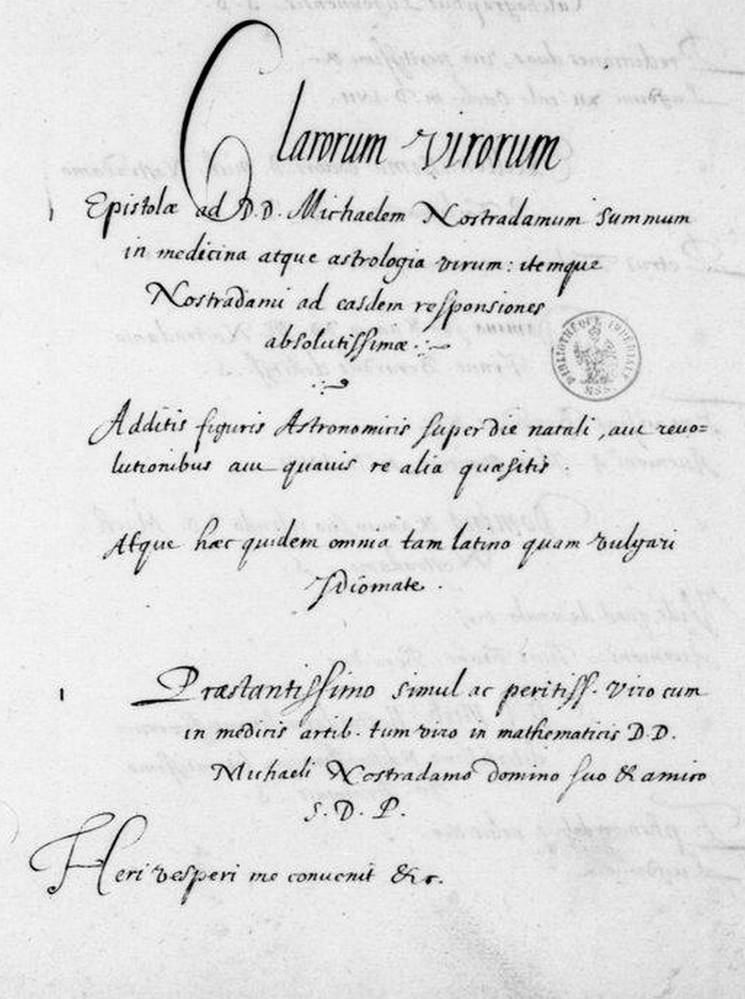 Clarorum virorum
1 Epistolæ ad D.D. Michaelem Nostradamum summum
in medicina atque astrologia virum: itemque
Nostradami ad easdem responsiones
absolutissimæ.
BIBLIOTHÈQUE IMPÉRIALE
MSS
Additis figuris Astronomicis super die natali, aut revo=
lutionibus aut quauis re alia quæsitis.
Atque hæc quidem omnia tam latino quam vulgari
Idiomate.
1 Præstantissimo simul ac peritiss. viro cum
in medicis artib. tum viro in mathematicis D.D.
Michaeli Nostradamo domino suo & amico
S. D. P.
Heri vesperi me conuenit &c.